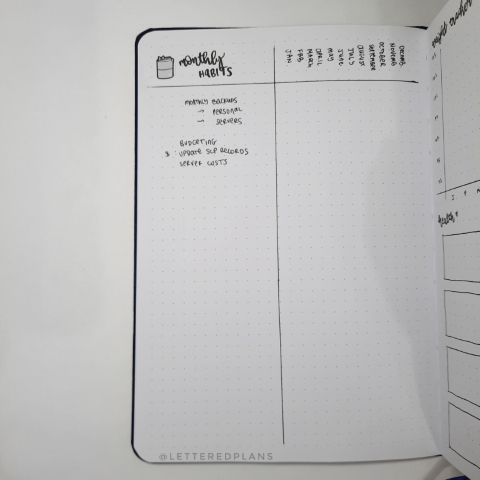 monthly
HABITS
JAN
FAB
MARCH
APRIL
MAY
JUNE
JULY
AUGUST
SEPTEMBER
OCTOBER
NOVEMB
DECEMB
MONTHLY BACKUPS
→ PERSONAL
→ SERVERS
BUDGETING
$ UPDATE SCP RECORDS
SERVER COSTS
@LETTEREDPLANS